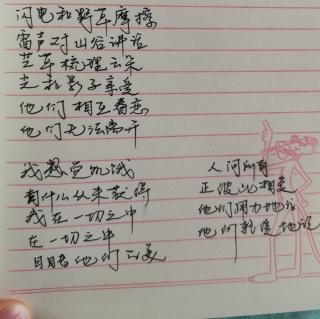 闪电和野草摩擦
雷声对山谷讲话
芒草梳理云朵
光和影子亲爱
他们相互眷恋
他们无法离开
我感觉饥饿
有什么从未获得
我在一切之中
在一切之中
目睹他们
人间所有
正彼此相爱
他们用力地
他们轻